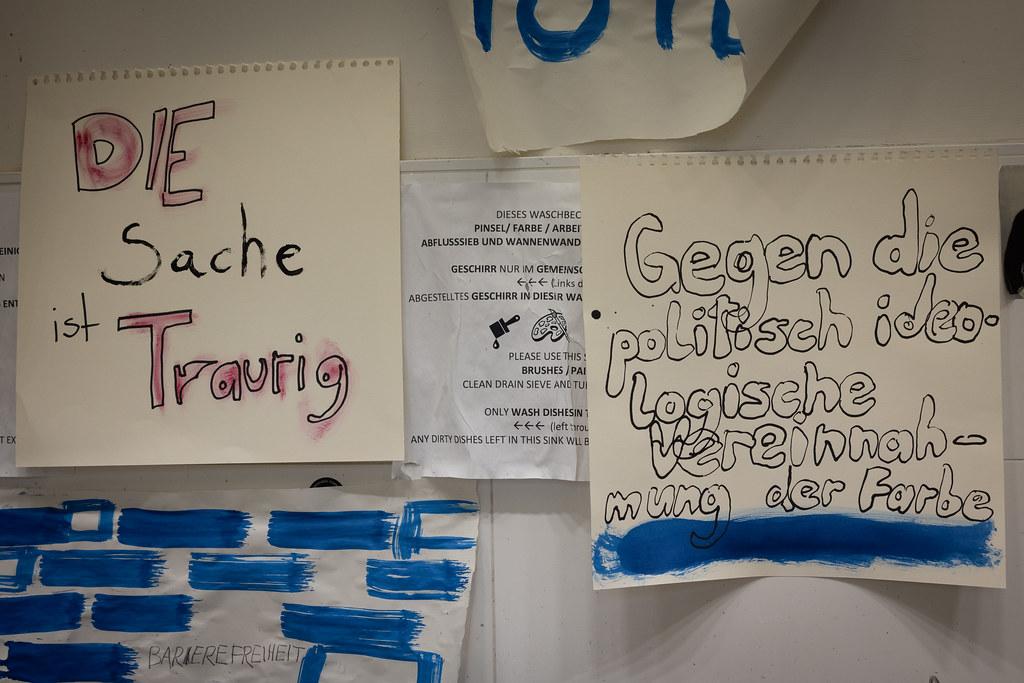 DIE
Sache
ist Traurig
DIESES WASCHBEC
PINSEL/ FARBE / ARBEI
ABFLUSSSIEB UND WANNENWAND
GESCHIRR NUR IM GEMEINSC
←←← (Links d
ABGESTELLTES GESCHIRR IN DIESER WA
PLEASE USE THIS S
BRUSHES / PAI
CLEAN DRAIN SIEVE AND TU
ONLY WASH DISHESIN T
←←← (left throu
ANY DIRTY DISHES LEFT IN THIS SINK WILL B
Gegen die
politisch ideo-
logische
Vereinnah-
mung der Farbe
BARIEREFREIHEIT